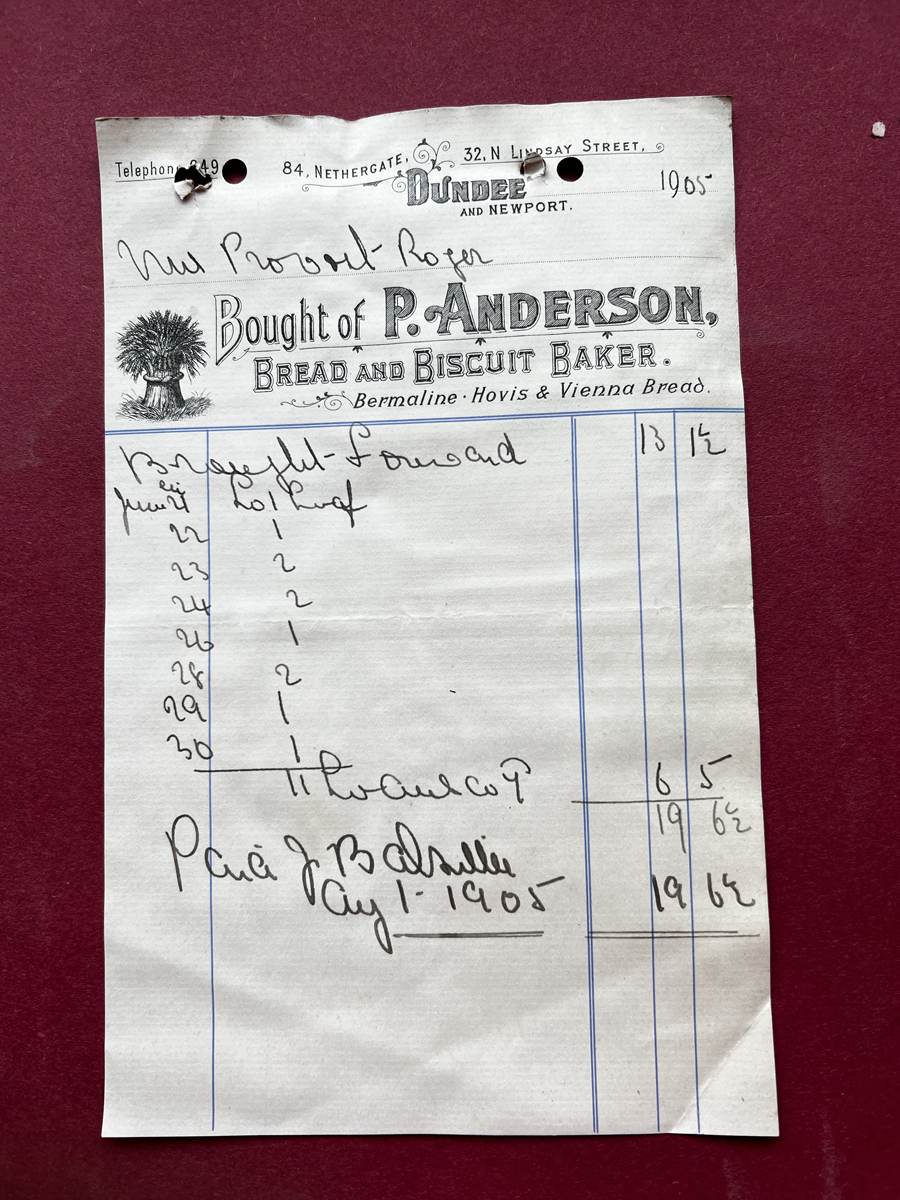 Telephone 849
84, NETHERGATE, 32, N LINDSAY STREET,
DUNDEE
AND NEWPORT.
1905
Provost Roger
Bought of P. ANDERSON,
BREAD AND BISCUIT BAKER.
Bermaline · Hovis & Vienna Bread.
Brought Forward 13 1½
June 21 to 1 Loaf
22 1
23 2
24 2
26 1
28 2
29 1
30 1
11 Loaves 6 5
19 6½
Paid J
Aug 1 - 1905 19 6½